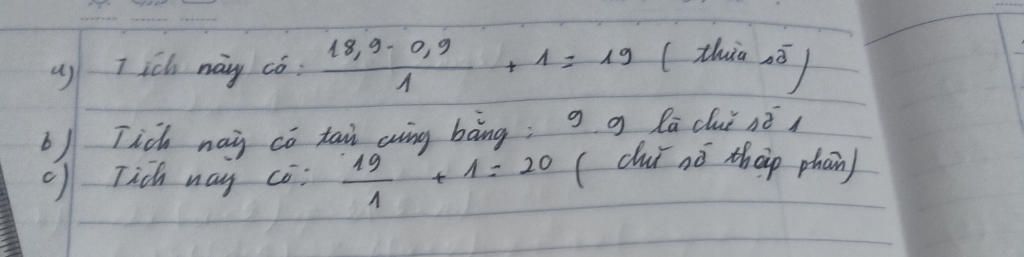 a) Tích này có: \frac{18,9 - 0,9}{1} + 1 = 19 ( thừa số )
b) Tích này có tận cùng bằng: 9.9 là chữ số 1
c) Tích này có: \frac{19}{1} + 1 = 20 ( chữ số thập phân)